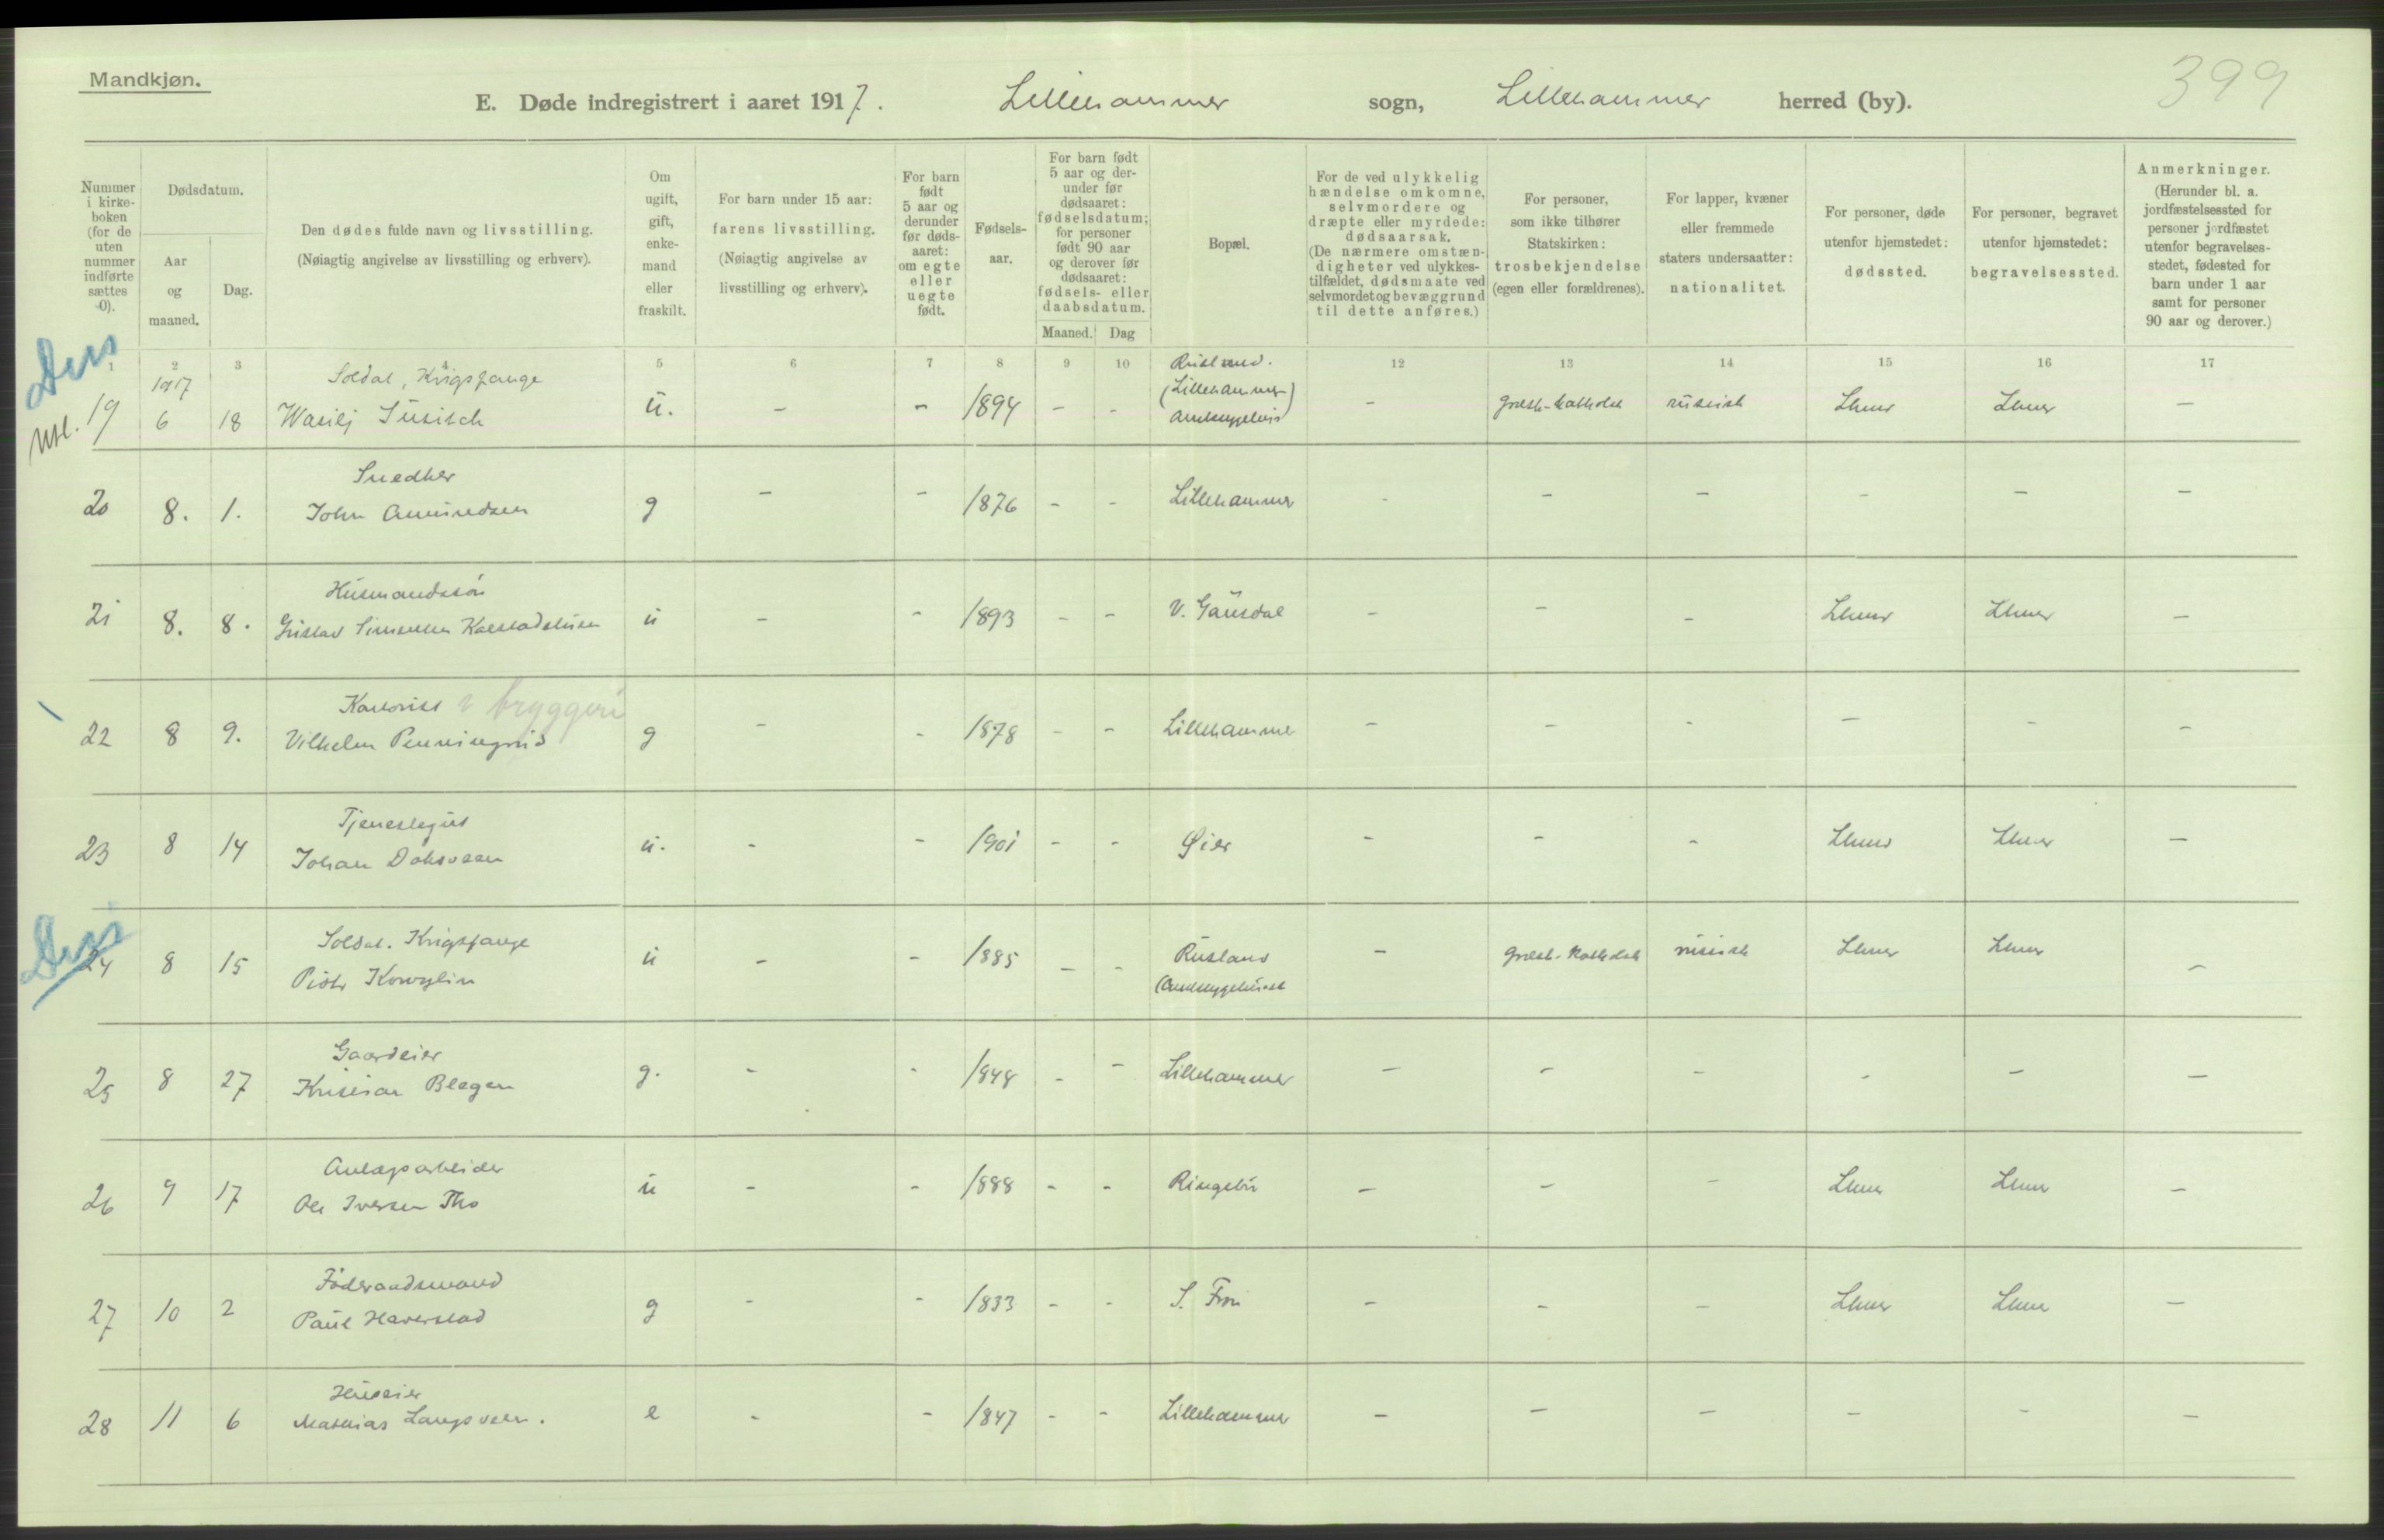 Mandkjøn.
E. Døde indregistrert i aaret 1917. Lillehammer sogn, Lillehammer herred (by).
399
Nummer i kirke-boken (for de uten nummer indførte sættes 0).
Dødsdatum.
Aar og maaned.
Dag.
Den dødes fulde navn og livsstilling.
(Nøiagtig angivelse av livsstilling og erhverv).
Om ugift, gift, enke-mand eller fraskilt.
For barn under 15 aar: farens livsstilling.
(Nøiagtig angivelse av livsstilling og erhverv).
For barn født 5 aar og derunder før døds-aaret: om egte eller uegte født.
Fødsels-aar.
For barn født 5 aar og der-under før dødsaaret: fødselsdatum; for personer født 90 aar og derover før dødsaaret: fødsels- eller daabsdatum.
Maaned. Dag
Bopæl.
For de ved ulykkelig hændelse omkomne, selvmordere og dræpte eller myrdede: dødsaarsak.
(De nærmere omstæn-digheter ved ulykkes-tilfældet, dødsmaate ved selvmordet og bevæggrund til dette anføres.)
For personer, som ikke tilhører Statskirken: trosbekjendelse (egen eller forældrenes).
For lapper, kvæner eller fremmede staters undersaatter: nationalitet.
For personer, døde utenfor hjemstedet: dødssted.
For personer, begravet utenfor hjemstedet: begravelsessted.
Anmerkninger.
(Herunder bl. a. jordfæstelsessted for personer jordfæstet utenfor begravelses-stedet, fødested for barn under 1 aar samt for personer 90 aar og derover.)
1 2 3 5 6 7 8 9 10 12 13 14 15 16 17
1917 Soldat, Krigsfange Rusland.
(Lillehammer)
19 6 18 Wasilj Susisch u. - - 1894 - - - græsk-katholsk russisk Lhmr Lhmr -
Snedker
20 8. 1. John Amundsen g - - 1876 - - Lillehammer - - - - - -
Husmandssøn
21 8. 8. Gustav Simensen u - - 1893 - - V. Gausdal - - - Lhmr Lhmr -
Kontorist v bryggeri
22 8 9. Vilhelm g - - 1878 - - Lillehammer - - - - - -
Tjenestegut
23 8 14 Johan u. - - 1901 - - Øier - - - Lhmr Lhmr -
Soldat. Krigsfange
24 8 15 Piotr Kowylin u - - 1885 - - Rusland - græsk-katholsk russisk Lhmr Lhmr -
Gaardeier
25 8 27 Kristian Blegen g. - - 1848 - - Lillehammer - - - - - -
Anlægsarbeider
26 9 17 Ole Iversen Tho u - - 1888 - - Ringebu - - - Lhmr Lhmr -
Føderaadsmand
27 10 2 Paul Haverstad g - - 1833 - - S. Fron - - - Lhmr Lhmr -
Huseier
28 11 6 Mathias Langsveen. e - - 1847 - - Lillehammer - - - - - -